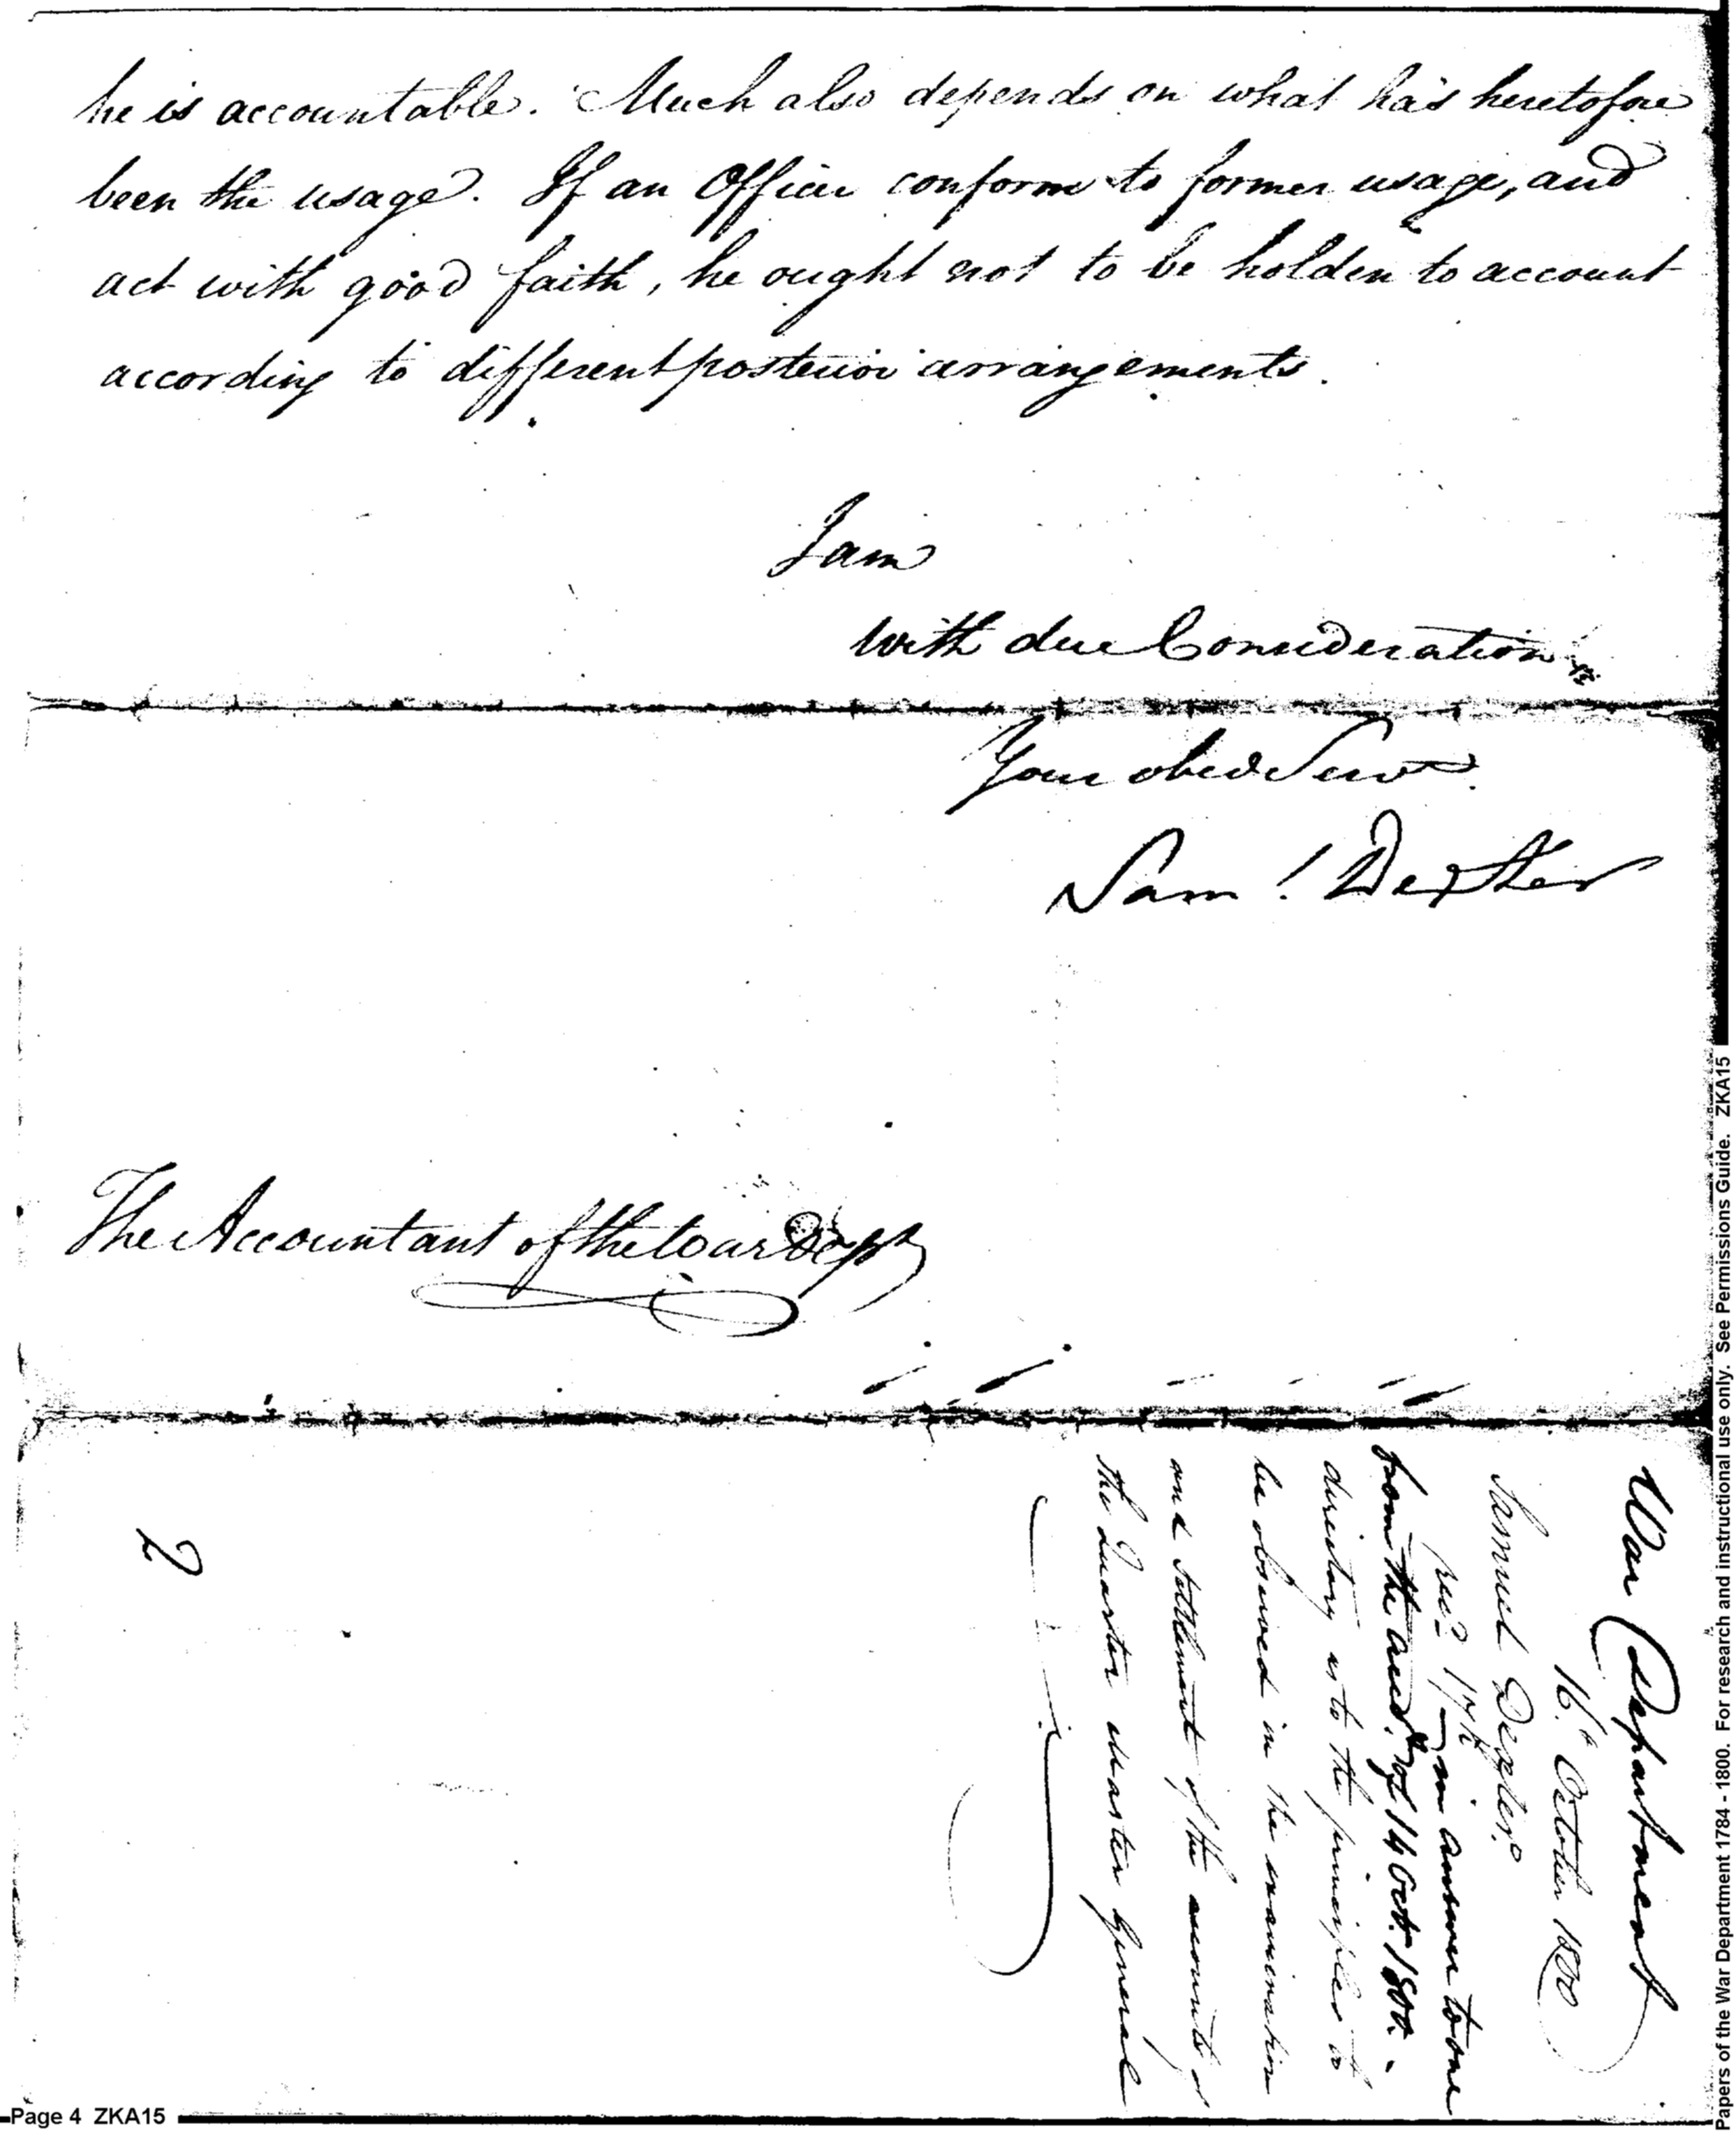 he is accountable. Much also depends on what has heretofore
been the usage. If an Officer conform to former usage, and
act with good faith, he ought not to be holden to account
according to different posterior arrangements.
I am
With due Consideration
Your obed Servt
Saml Dexter
The Accountant of the War Dept
War Department
16th October 1800
Samuel Dexter
recd 17th in answer to one
from the acct. of 14 Octr. 1800. -
directory as to the principles to
be observed in the examination
and settlement of the accounts of
the Quarter Master General
2
Page 4 ZKA15
Papers of the War Department 1784 - 1800. For research and instructional use only. See Permissions Guide. ZKA15